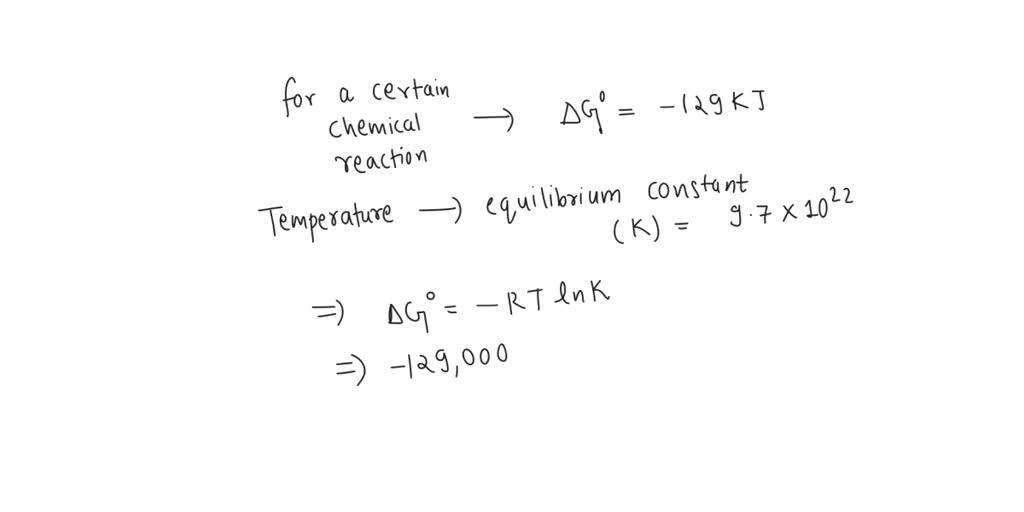 for a certain
chemical
reaction
→ ΔG° = -129 KJ
Temperature → equilibrium constant
(K) = 9.7 × 10²²
⇒ ΔG° = - RT lnK
⇒ -129,000